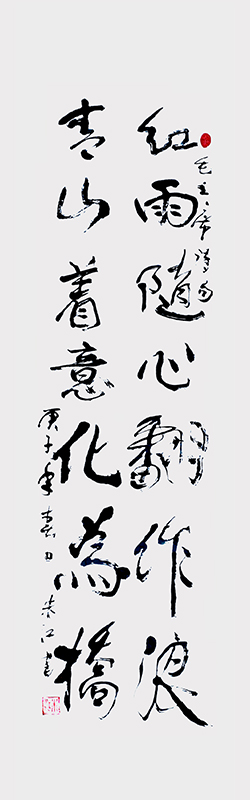 毛主席诗句
红雨随心翻作浪
青山着意化为桥
庚子年春日朱江书